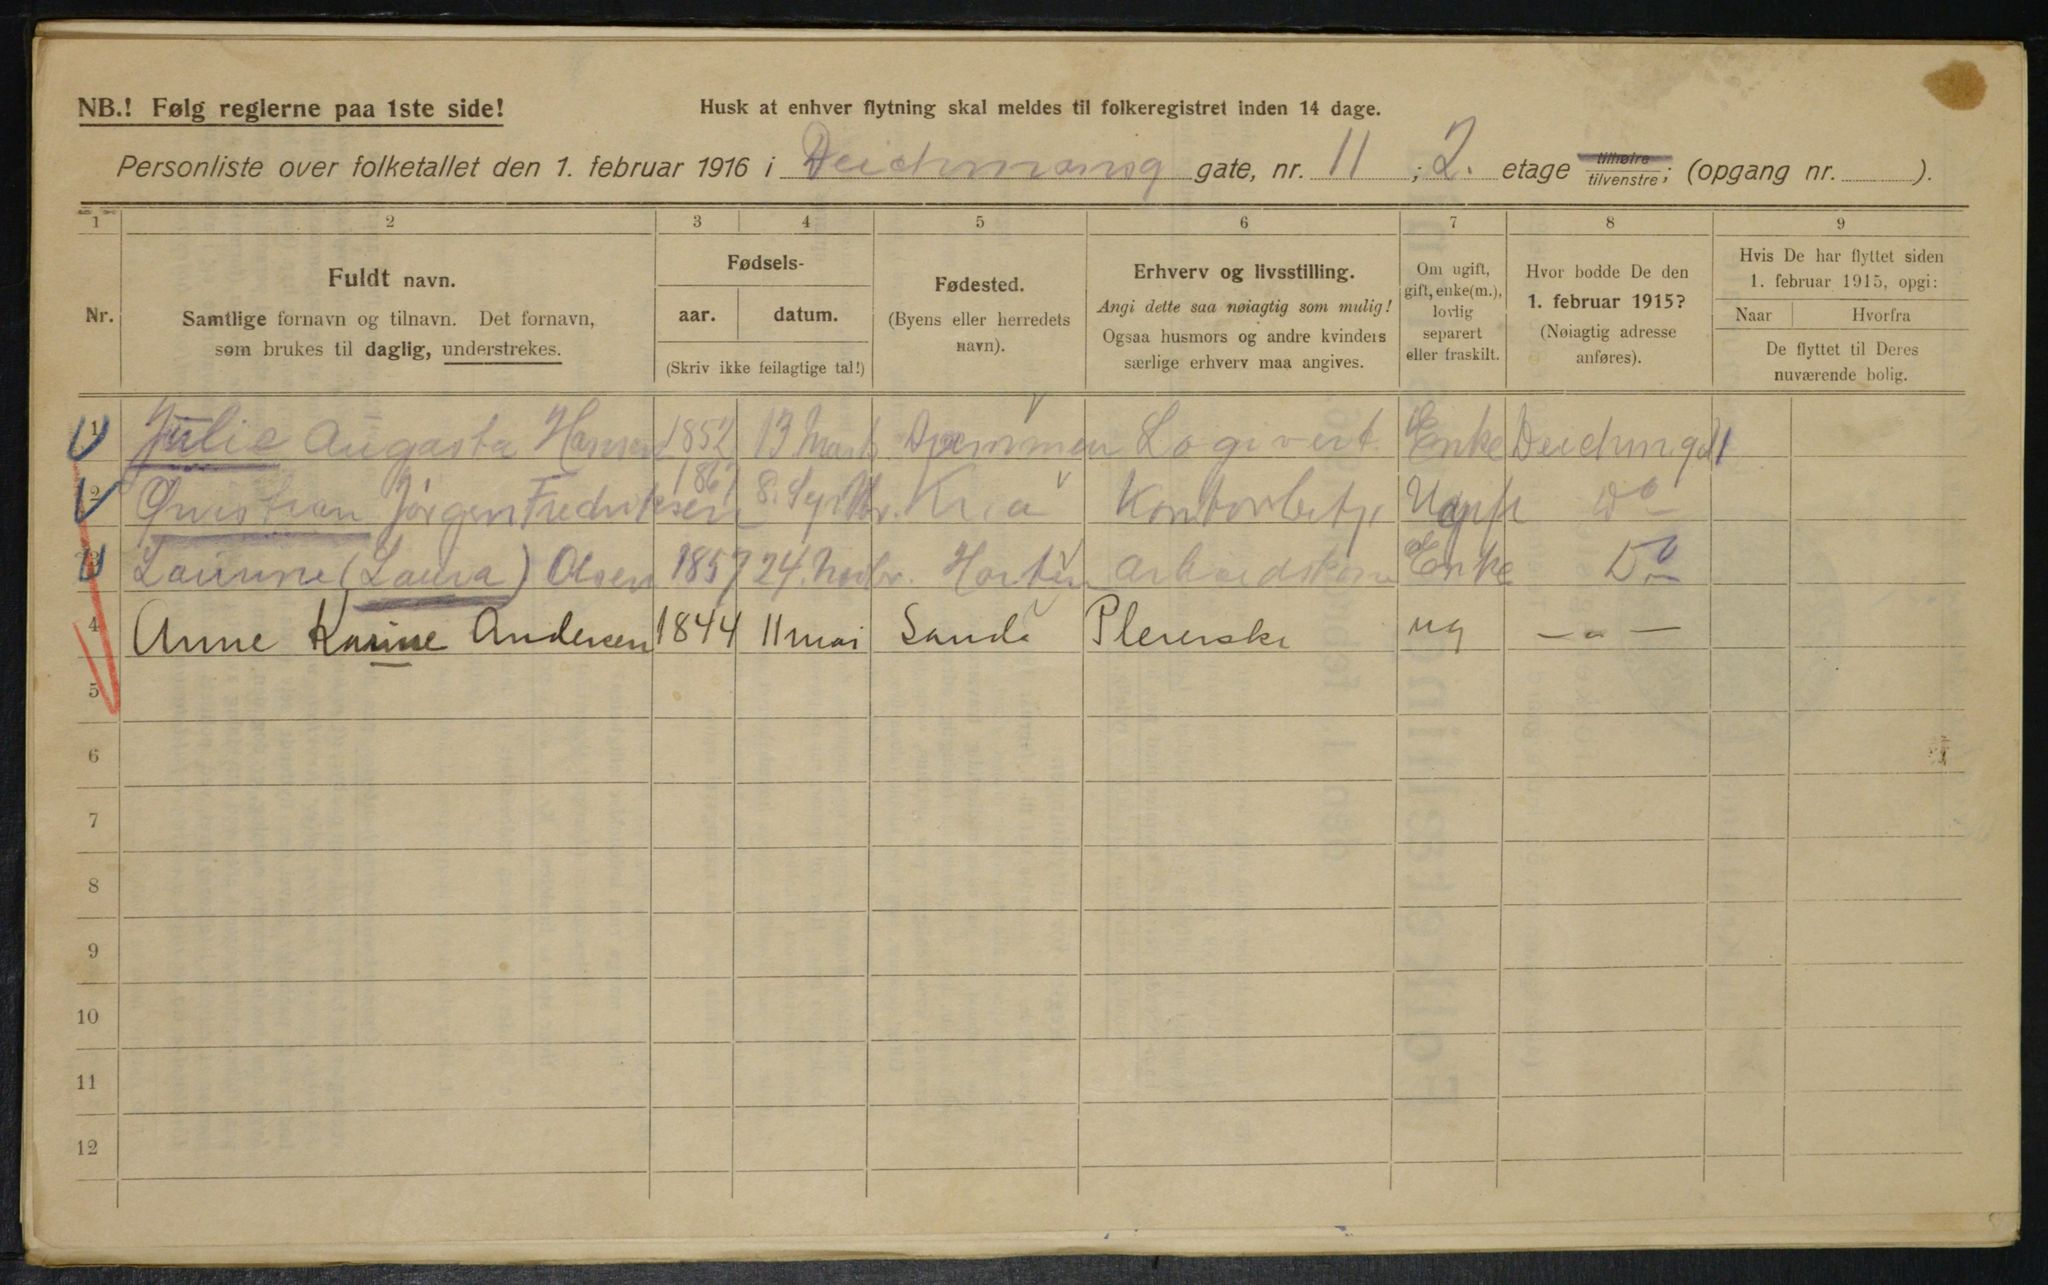 NB.! Følg reglerne paa 1ste side!
Husk at enhver flytning skal meldes til folkeregistret inden 14 dage.
Personliste over folketallet den 1. februar 1916 i Deichmansg gate, nr. 11 ; 2. etage tilhøire tilvenstre; (opgang nr. ).
1 2 3 4 5 6 7 8 9
Nr.
Fuldt navn.
Samtlige fornavn og tilnavn. Det fornavn,
som brukes til daglig, understrekes.
Fødsels-
aar. datum.
(Skriv ikke feilagtige tal!)
Fødested.
(Byens eller herredets
navn).
Erhverv og livsstilling.
Angi dette saa nøiagtig som mulig!
Ogsaa husmors og andre kvinders
særlige erhverv maa angives.
Om ugift,
gift, enke(m.),
lovlig
separert
eller fraskilt.
Hvor bodde De den
1. februar 1915?
(Nøiagtig adresse
anføres).
Hvis De har flyttet siden
1. februar 1915, opgi:
Naar Hvorfra
De flyttet til Deres
nuværende bolig.
1 Julie Augasta Hansen 1852 13 Marts Drammen Logivert Enke Deichmg 11
2 Christian Jörgen Fredriksen 1861 8. Septbr. Kr.a Kontorbetj. Ugift Do
3 Laurine (Laura) Olsen 1857 24. Novbr. Horten Arbeidskone Enke Do
4 Anne Karine Andersen 1844 11 mai Sande Pleierske ug — „ —
5
6
7
8
9
10
11
12